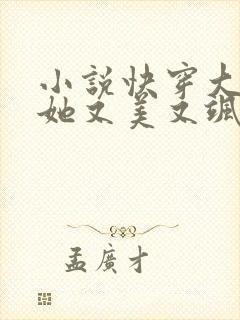 小説快穿大
她又美又颯
孟廣才